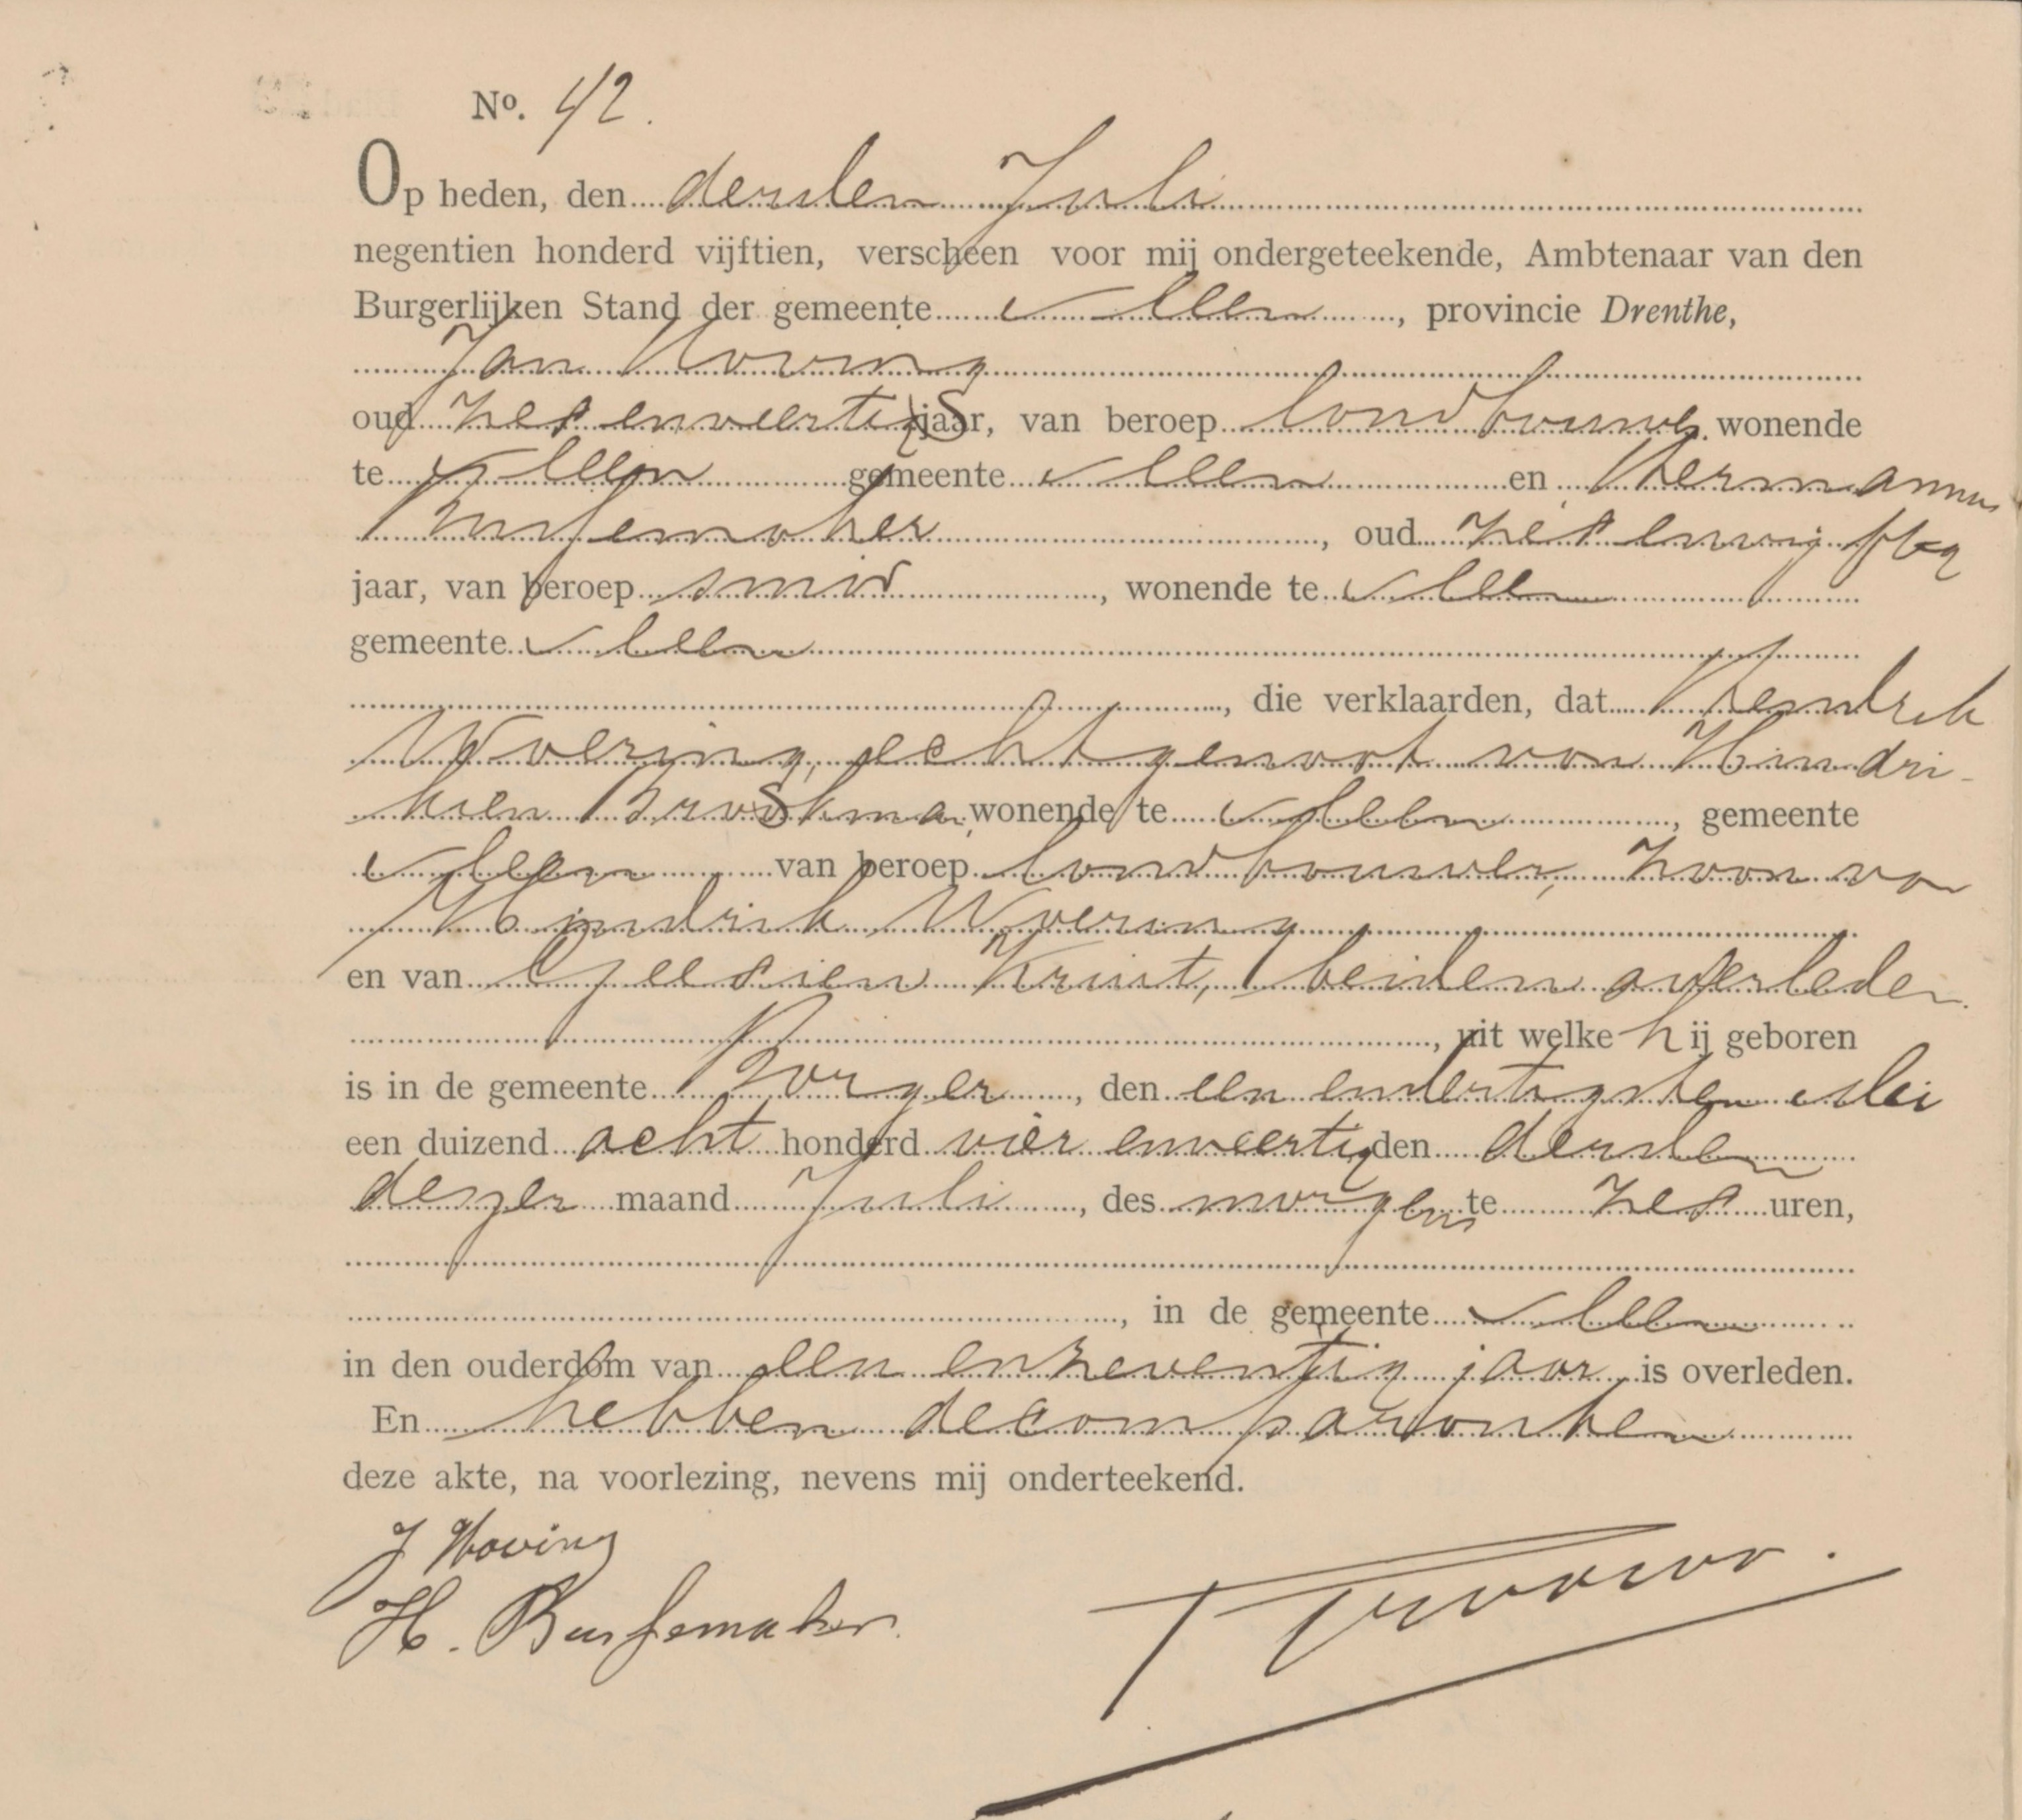 No. 42.
Op heden, den derden Juli
negentien honderd vijftien, verscheen voor mij ondergeteekende, Ambtenaar van den
Burgerlijken Stand der gemeente Sleen, provincie Drenthe,
Jan Hoving
oud zes enveertig jaar, van beroep landbouwer wonende
te Sleen gemeente Sleen en Hermannus
Bussemaker, oud zes envijftig
jaar, van beroep smid, wonende te Sleen
gemeente Sleen
, die verklaarden, dat Hendrik
Woering, echtgenoot van Hindri-
kien Brookma, wonende te Sleen, gemeente
Sleen van beroep landbouwer, zoon va
Hindrik Woering
en van Geesien Kruit, beiden overleden
, uit welke hij geboren
is in de gemeente Borger, den een endertigsten Mei
een duizend acht honderd vier enveertig den derden
dezer maand Juli, des morgens te zes uren,
, in de gemeente Sleen
in den ouderdom van een enzeventig jaar is overleden.
En hebben de comparanten
deze akte, na voorlezing, nevens mij onderteekend.
J Hoving
H. Bussemaker.